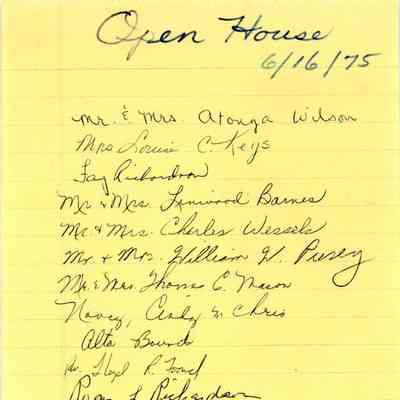 Open House
6/16/75
Mr. & Mrs. Atonga Wilson
Mrs Louise C. Keys
Fay Richardson
Mr & Mrs. Linwood Barnes
Mr & Mrs. Charles Wessels
Mr. & Mrs. William H. Pusey
Mr. & Mrs. Thomas C. Mason
Nancy, Cindy & Chris
Alta Bound
R.
L Richardson